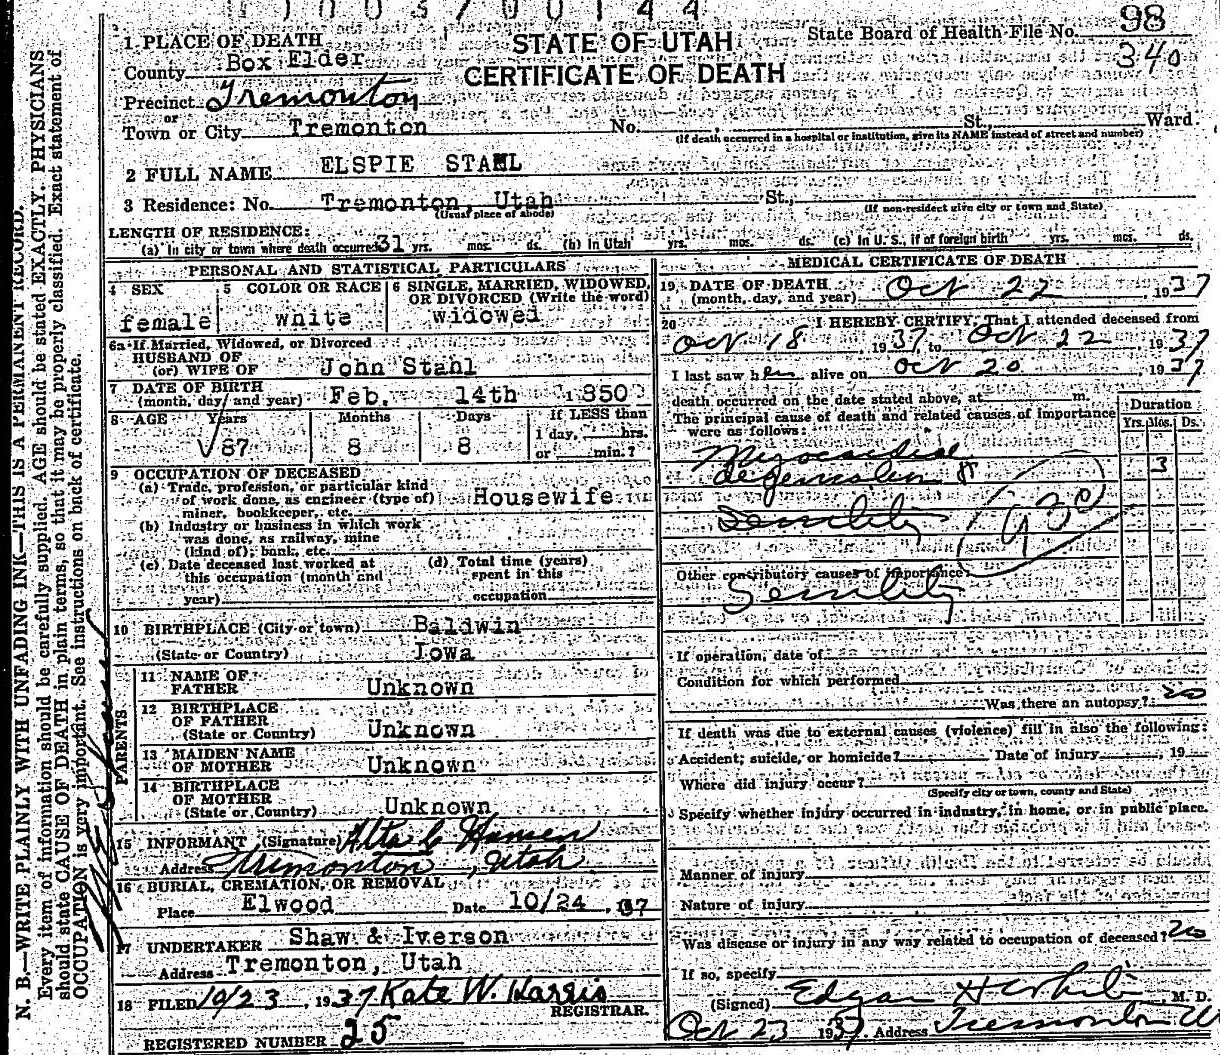 1003700144
98
STATE OF UTAH
State Board of Health File No.
CERTIFICATE OF DEATH
340
1 PLACE OF DEATH
County Box Elder
Precinct Tremonton
or
Town or City Tremonton No. St., Ward
(If death occurred in a hospital or institution, give its NAME instead of street and number)
2 FULL NAME ELSPIE STAHL
3 Residence: No. Tremonton, Utah St.,
(Usual place of abode) (If non-resident give city or town and State)
LENGTH OF RESIDENCE:
(a) In city or town where death occurred 31 yrs. mos. ds. (b) In Utah yrs. mos. ds. (c) In U. S., if of foreign birth yrs. mos. ds.
PERSONAL AND STATISTICAL PARTICULARS
4 SEX
female
5 COLOR OR RACE
white
6 SINGLE, MARRIED, WIDOWED,
OR DIVORCED (Write the word)
widowed
6a If Married, Widowed, or Divorced
HUSBAND OF
(or) WIFE OF John Stahl
7 DATE OF BIRTH
(month, day, and year) Feb. 14th 1850
8 AGE Years Months Days If LESS than
87 8 8 1 day, hrs.
or min.?
9 OCCUPATION OF DECEASED
(a) Trade, profession, or particular kind
of work done, as engineer (type of) Housewife
miner, bookkeeper, etc.
(b) Industry or business in which work
was done, as railway, mine
(kind of); bank, etc.
(c) Date deceased last worked at
this occupation (month and
year)
(d) Total time (years)
spent in this
occupation
10 BIRTHPLACE (City or town) Baldwin
(State or Country) Iowa
PARENTS
11 NAME OF
FATHER Unknown
12 BIRTHPLACE
OF FATHER
(State or Country) Unknown
13 MAIDEN NAME
OF MOTHER Unknown
14 BIRTHPLACE
OF MOTHER
(State or Country) Unknown
15 INFORMANT (Signature) Alta C Hansen
Address Tremonton, Utah
16 BURIAL, CREMATION, OR REMOVAL
Place Elwood Date 10/24, 37
17 UNDERTAKER Shaw & Iverson
Address Tremonton, Utah
18 FILED 10/23, 1937 Kate W. Harris
REGISTRAR.
REGISTERED NUMBER 25
MEDICAL CERTIFICATE OF DEATH
19 DATE OF DEATH
(month, day, and year) Oct 22, 1937
20 I HEREBY CERTIFY, That I attended deceased from
Oct 18, 1937 to Oct 22, 1937
I last saw her alive on Oct 20, 1937
death occurred on the date stated above, at m.
The principal cause of death and related causes of importance
were as follows:
Duration
Yrs. Mos. Ds.
Myocardial
3
degeneration
Senility
930
Other contributory causes of importance:
Senility
If operation, date of
Condition for which performed
Was there an autopsy? no
If death was due to external causes (violence) fill in also the following:
Accident, suicide, or homicide? Date of injury, 19
Where did injury occur?
(Specify city or town, county and State)
Specify whether injury occurred in industry, in home, or in public place.
Manner of injury
Nature of injury
Was disease or injury in any way related to occupation of deceased? no
If so, specify
(Signed) Edgar H , M. D.
Oct 23 1937 Address Tremonton Ut
N. B.—WRITE PLAINLY WITH UNFADING INK—THIS IS A PERMANENT RECORD.
Every item of information should be carefully supplied. AGE should be stated EXACTLY. PHYSICIANS
should state CAUSE OF DEATH in plain terms, so that it may be properly classified. Exact statement of
OCCUPATION is very important. See instructions on back of certificate.